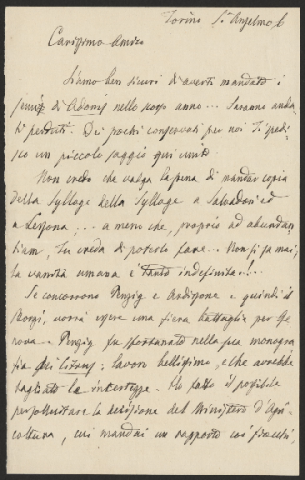 Torino S. Anselmo 6
Carissimo Amico
Siamo ben sicuri di averti mandato i
semi di Adonis nello scorso anno... Saranno anda-
ti perduti. Dei pochi conservati per noi Ti spedi-
sco un piccolo saggio qui unito.
Non credo che valga la pena di mandar copia
della Sylloge della Sylloge a Salvadori ed
a Lessona;... a meno che, proprio ad abundan-
tiam, Tu creda di poterlo fare... Non si sa mai;
la vanità umana è tanto indefinita!...
Se concorrono Penzig e Ardissone e quindi il
Borzì, vorrà essere una fiera battaglia per Ge-
nova. Penzig fu sfortunato nella sua monogra-
fia dei Citrus; lavoro bellissimo, e che avrebbe
tagliato la Ho fatto il possibile
per sollecitare la decisione del Ministero d'Agri-
coltura, cui mandai un rapporto coi fiocchi,